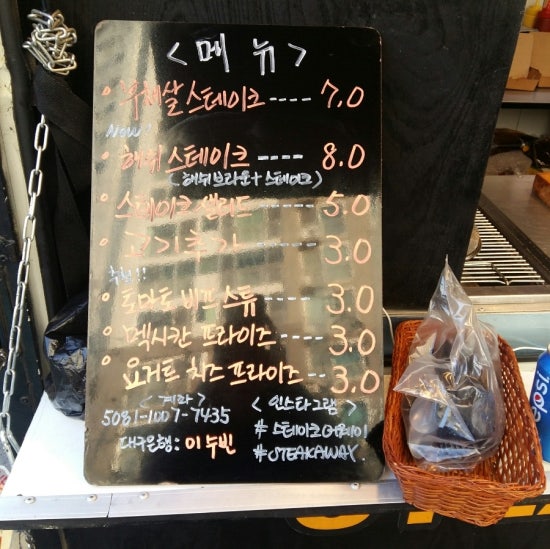 <메뉴>
부채살 스테이크 ---- 7.0
New!
해쉬 스테이크 ---- 8.0
(해쉬브라운+스테이크)
스테이크 샐러드 ---- 5.0
고기추가 ---- 3.0
추천!!
토마토 비프 스튜 ---- 3.0
멕시칸 프라이즈 ---- 3.0
요거트 치즈 프라이즈 -- 3.0
<계좌>
5081-1007-7435
대구은행: 이수빈
<인스타그램>
#스테이크어웨이
#STEAKAWAY
pepsi